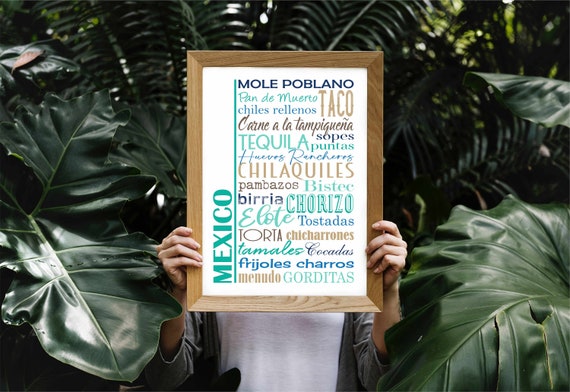 MEXICO
MOLE POBLANO
Pan de Muerto
TACO
chiles rellenos
Carne a la tampiqueña
TEQUILA
sopes
puntas
Huevos Rancheros
CHILAQUILES
pambazos Bistec
birria CHORIZO
Elote Tostadas
TORTA chicharrones
tamales Cocadas
frijoles charros
menudo GORDITAS